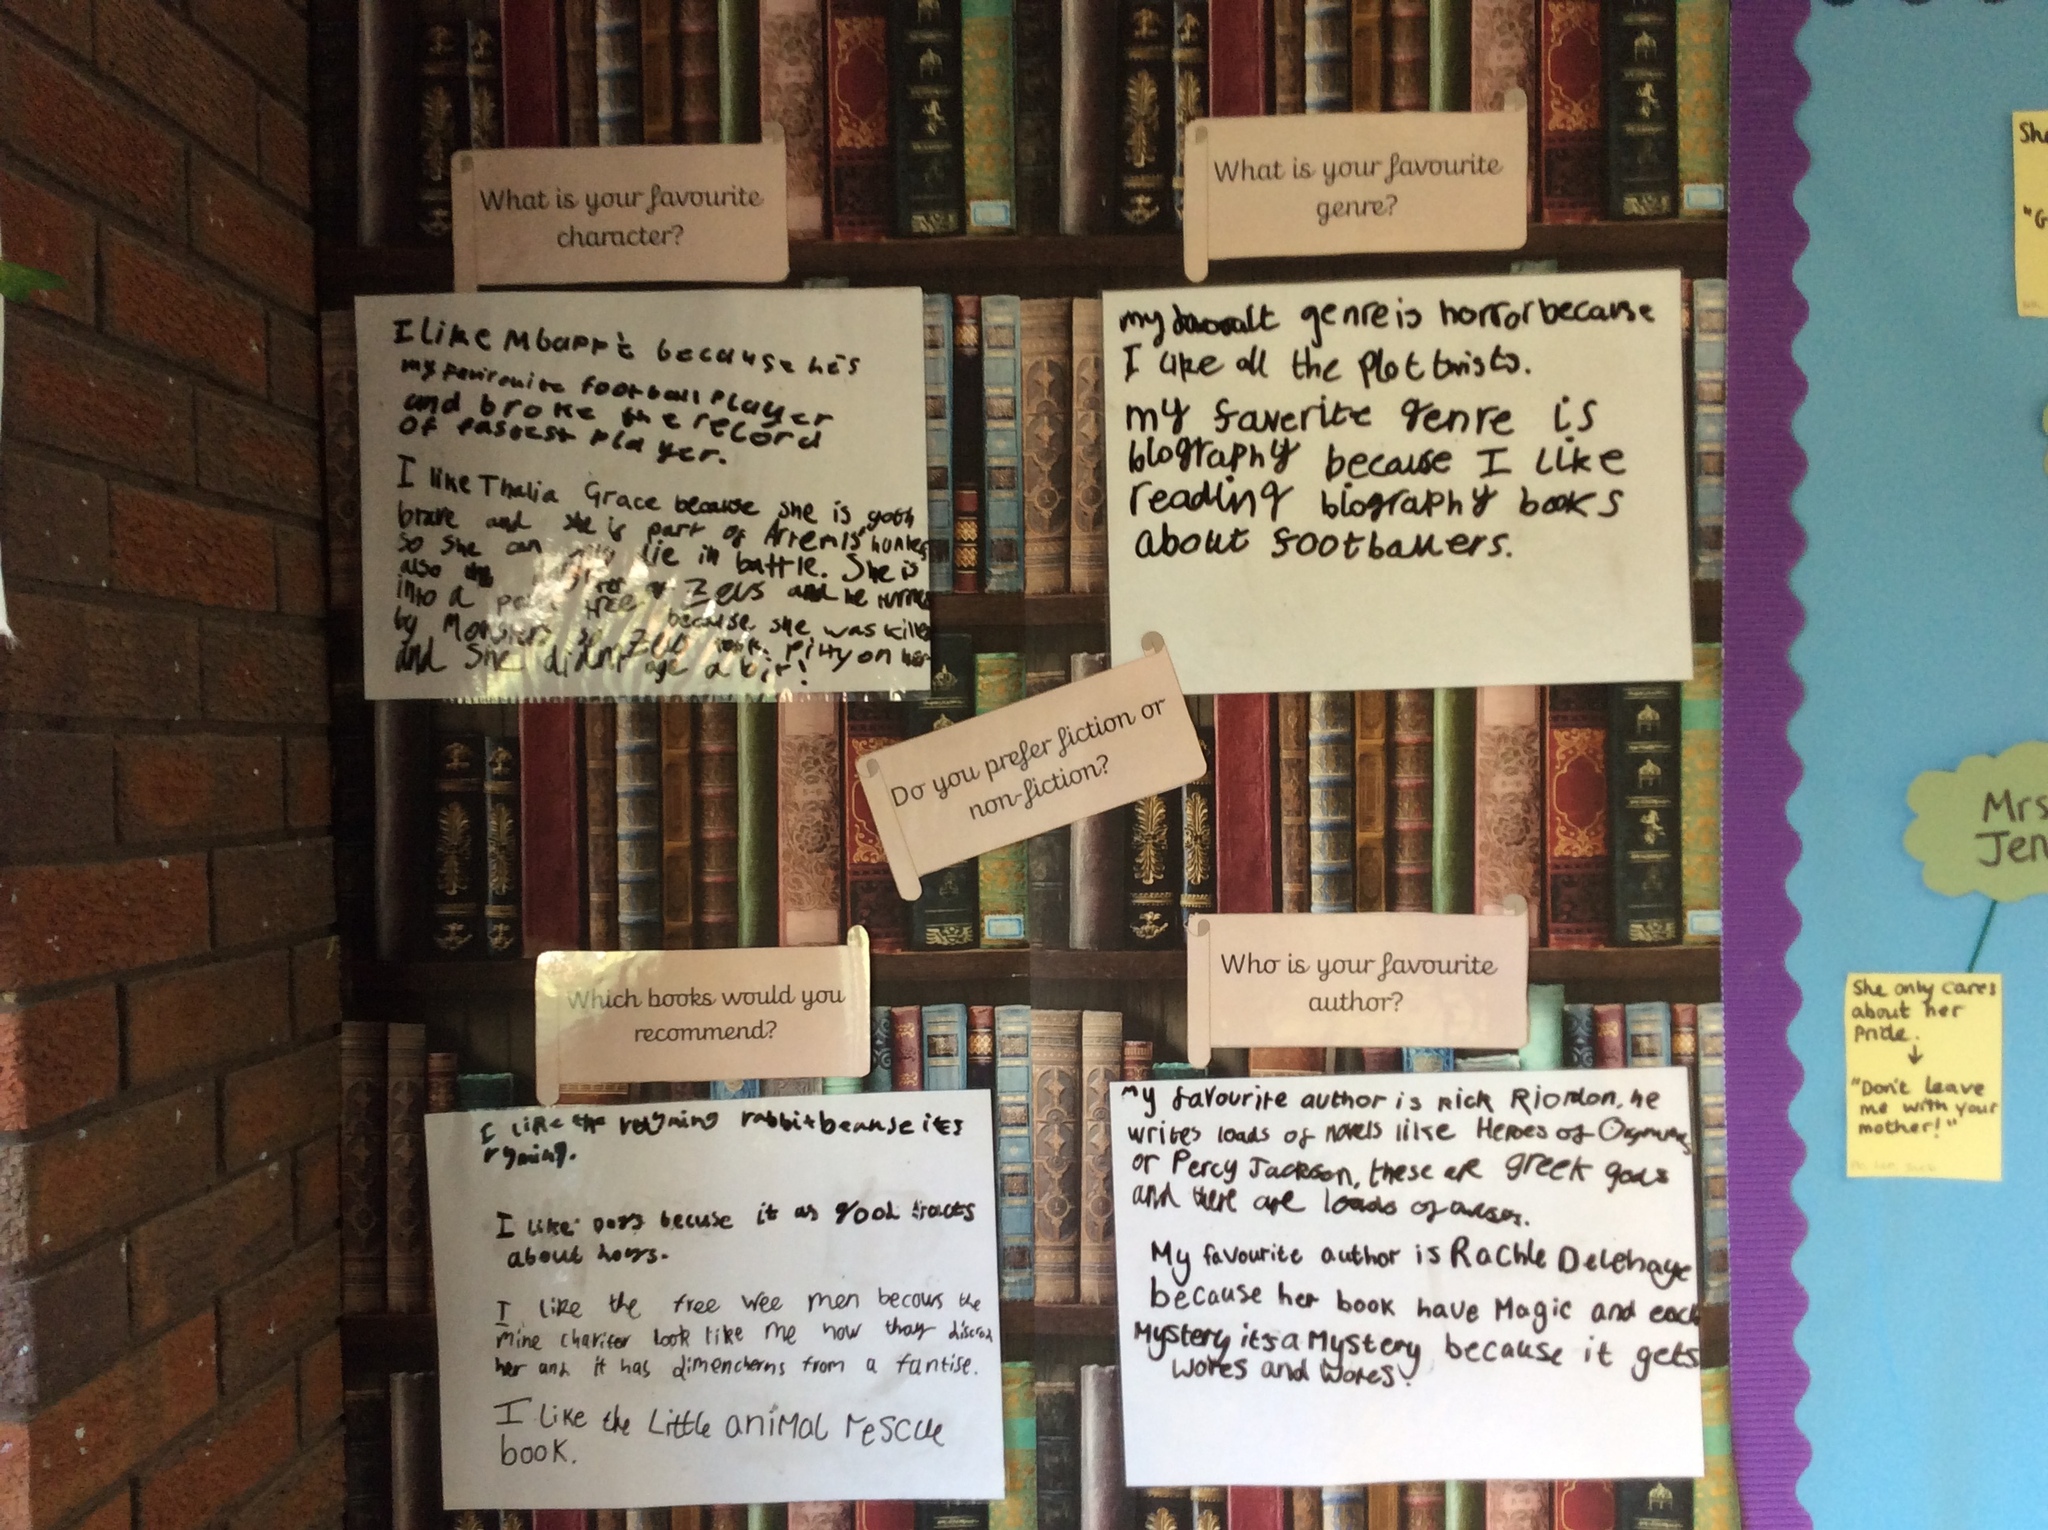 What is your favourite
character?
I like Mbappé because he's
my favirouite football player
and broke the record
of fastest player.
I like Thalia Grace because she is goth
brave and she is part of Artemis' hunters
so she can only die in battle. She is
also the of Zeus and he turned
into a tree because she was killed
by Monsters so Zeus took pitty on her
and she didn't age a bit!
What is your favourite
genre?
my genre is horror because
I like all the plot twists.
my faverite genre is
biography because I like
reading biography books
about footballers.
Do you prefer fiction or
non-fiction?
Which books would you
recommend?
I like the rabbit beause its
ryming.
I like Dogs becuse it as good
about
I like the free wee men becows the
mine chariter look like me now thay
her and it has dimencherns from a fantise.
I like the Little animal rescue
book.
Who is your favourite
author?
My favourite author is Rick Riordon, he
writes loads of novels like Heroes of
or Percy Jackson, these are greek gods
and there are loads of
My favourite author is Rachle Delehaye
because her book have Magic and each
Mystery it's a Mystery because it gets
wores and wores!
She
"G
Mrs
Jen
She only cares
about her
pride.
↓
"Don't leave
me with your
mother!"